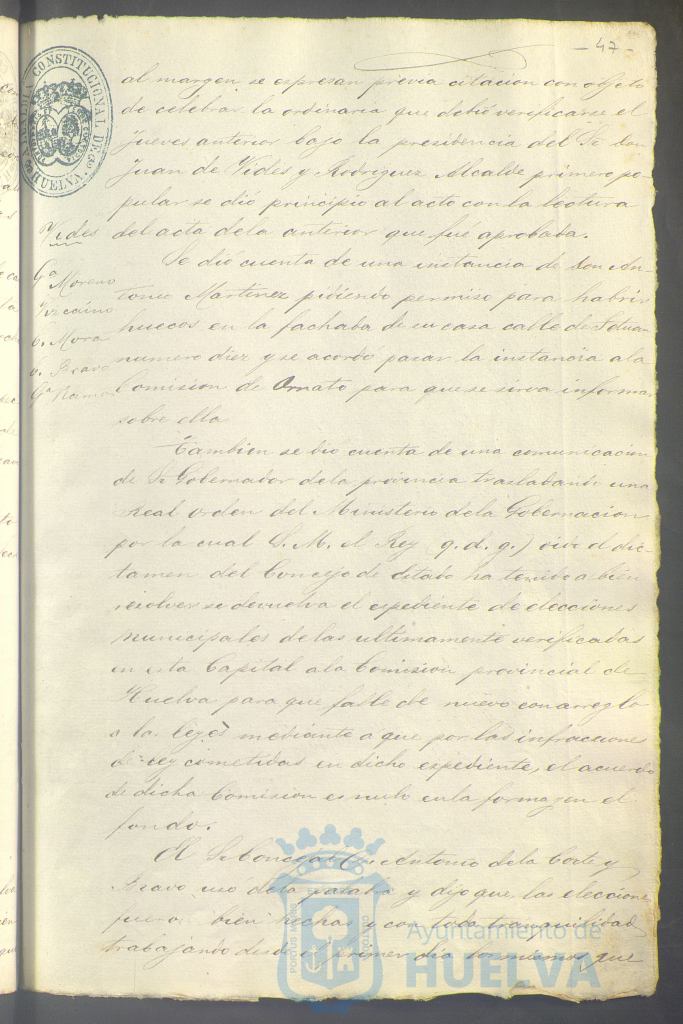 - 47 -
ALCALDIA CONSTITUCIONAL DE HUELVA
al margen se espresan previa citacion con objeto
de celebrar la ordinaria que debió verificarse el
jueves anterior bajo la presidencia del Sr. don
Juan de Vides y Rodriguez Alcalde primero po-
pular se dió principio al acto con la lectura
del acta de la anterior que fué aprobada.
Vides
Ga Moreno
Vizcaino
Mora
Bravo
Ga Ramos
Se dió cuenta de una instancia de don An-
tonio Martinez pidiendo permiso para habrir
huecos en la fachada de su casa calle de Tetuan
numero diez y se acordó pasar la instancia a la
Comision de Ornato para que se sirva informar
sobre ella
Tambien se dió cuenta de una comunicacion
de Sr Gobernador de la provincia trasladando una
Real orden del Ministerio de la Gobernacion
por la cual S. M. el Rey (q. d. g.) oido el dic-
tamen del Concejo de Estado ha tenido a bien
resolver se devuelva el espediente de elecciones
municipales de las ultimamente verificadas
en esta Capital a la Comision provincial de
Huelva para que falle de nuevo con arreglo
a la leyes mediante a que por las infracciones
de ley cometidas en dicho espediente, el acuerdo
de dicha Comision es nulo en la forma y en el
fondo.
El Sr Concejal Dn Antonio de la Corte y
Bravo usó de la palabra y dijo que las elecciones
fueron bien hechas y con toda tranquilidad
trabajando desde el primer dia los mismos que
Ayuntamiento de
HUELVA